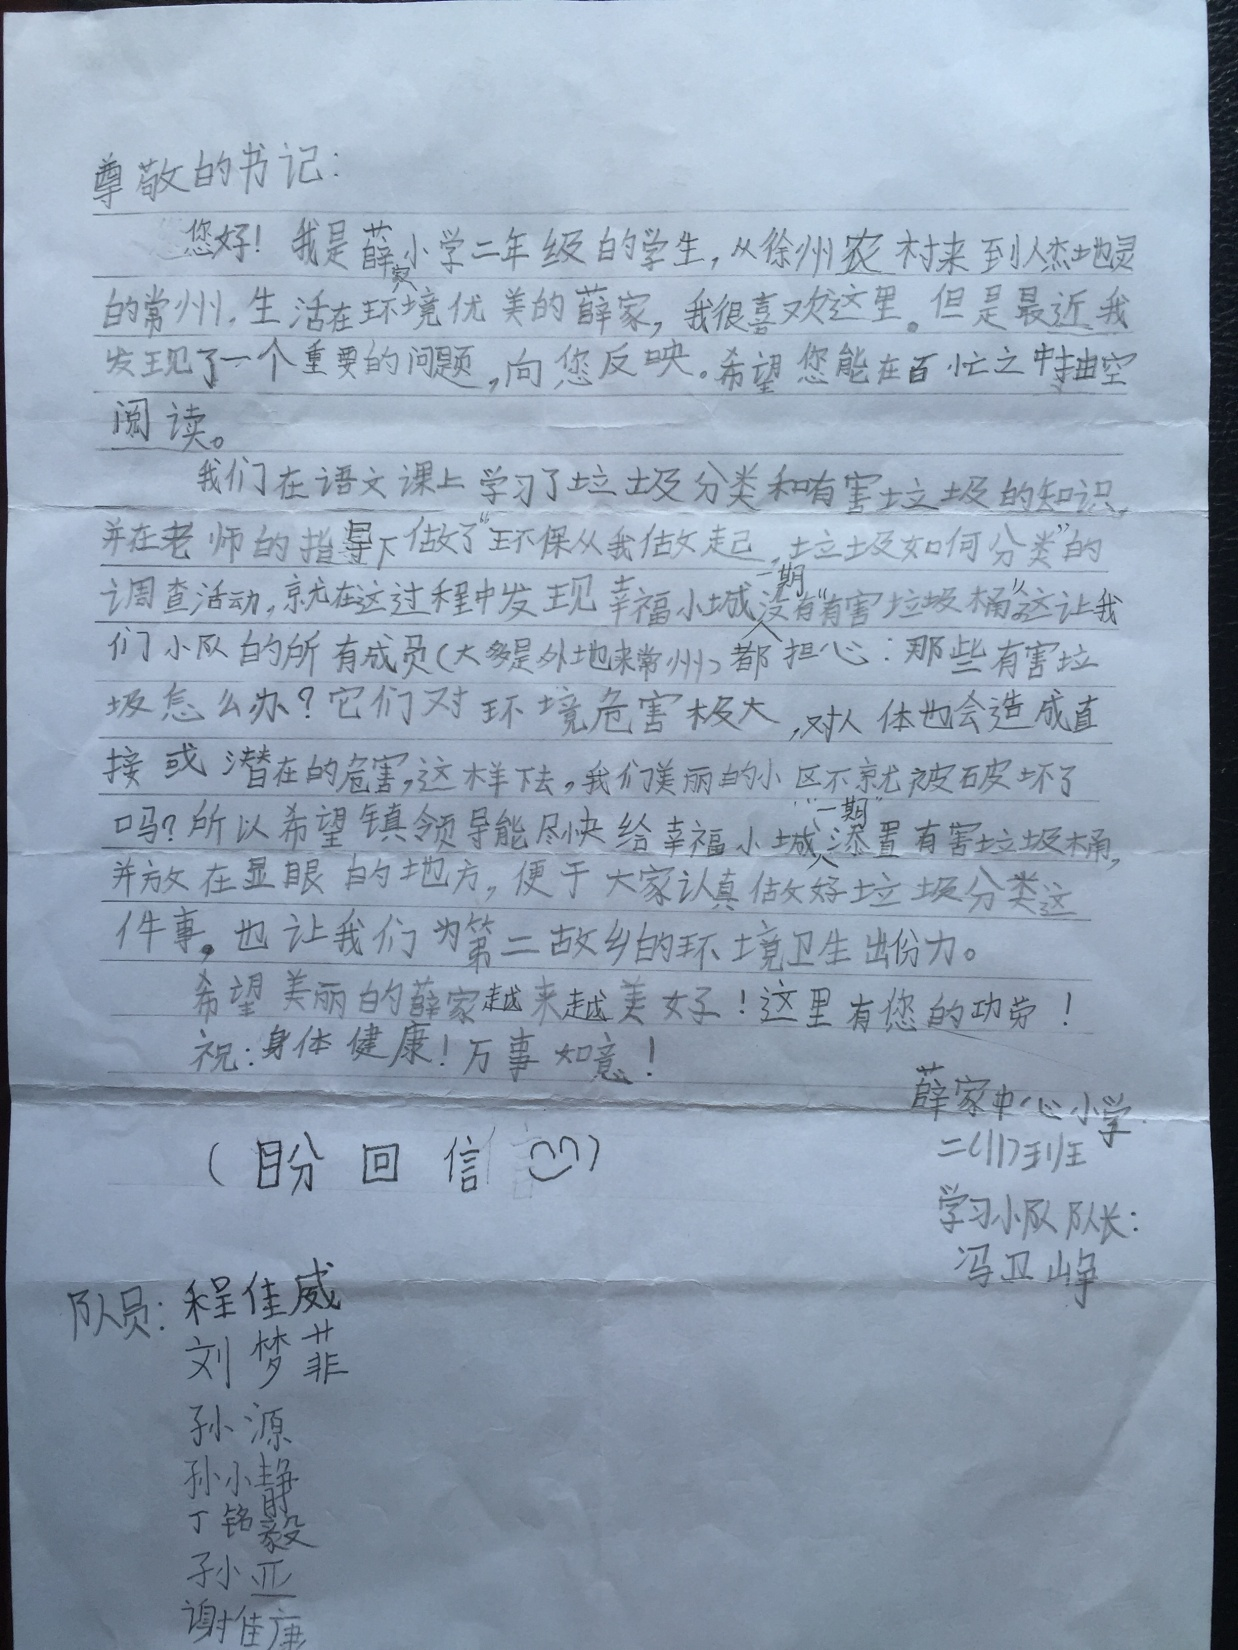 尊敬的书记：
您好！我是薛家小学二年级的学生，从徐州农村来到人杰地灵
的常州，生活在环境优美的薛家，我很喜欢这里。但是最近我
发现了一个重要的问题，向您反映。希望您能在百忙之中抽空
阅读。
我们在语文课上学习了垃圾分类和有害垃圾的知识，
并在老师的指导下做了“环保从我做起，垃圾如何分类”的
调查活动，就在这过程中发现幸福小城一期没有“有害垃圾桶”。这让我
们小队的所有成员（大多是外地来常州）都担心：那些有害垃
圾怎么办？它们对环境危害极大，对人体也会造成直
接或潜在的危害，这样下去，我们美丽的小区不就被破坏了
吗？所以希望镇领导能尽快给幸福小城“一期”添置有害垃圾桶，
并放在显眼的地方，便于大家认真做好垃圾分类这
件事。也让我们为第二故乡的环境卫生出份力。
希望美丽的薛家越来越美好！这里有您的功劳！
祝：身体健康！万事如意！
薛家中心小学
二（11）班
（盼回信）
学习小队队长：
冯卫峥
队员：程佳威
刘梦菲
孙源
孙小静
丁铭毅
孙小亚
谢佳康